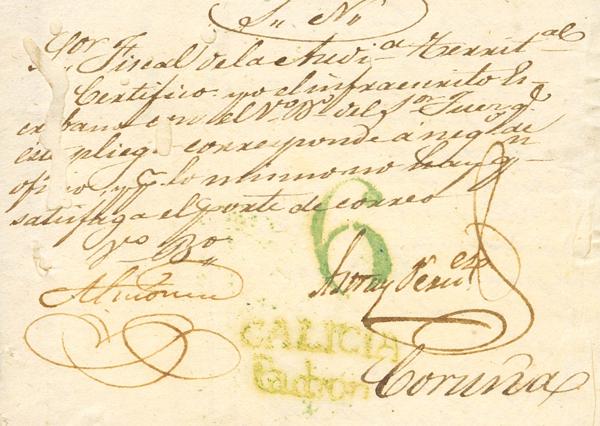 S. N.
Sor. Fiscal de la Audi.a Territ.al
Certifico yo el infraescrito Es-
cribano con el Vo. Bo. del Sr. Juez q.e
este pliego corresponde a neg.o de
oficio y q.e lo mismo no hay q.n
satisfaga el porte de correo
Vo. Bo.
6
GALICIA
Padron
Coruña